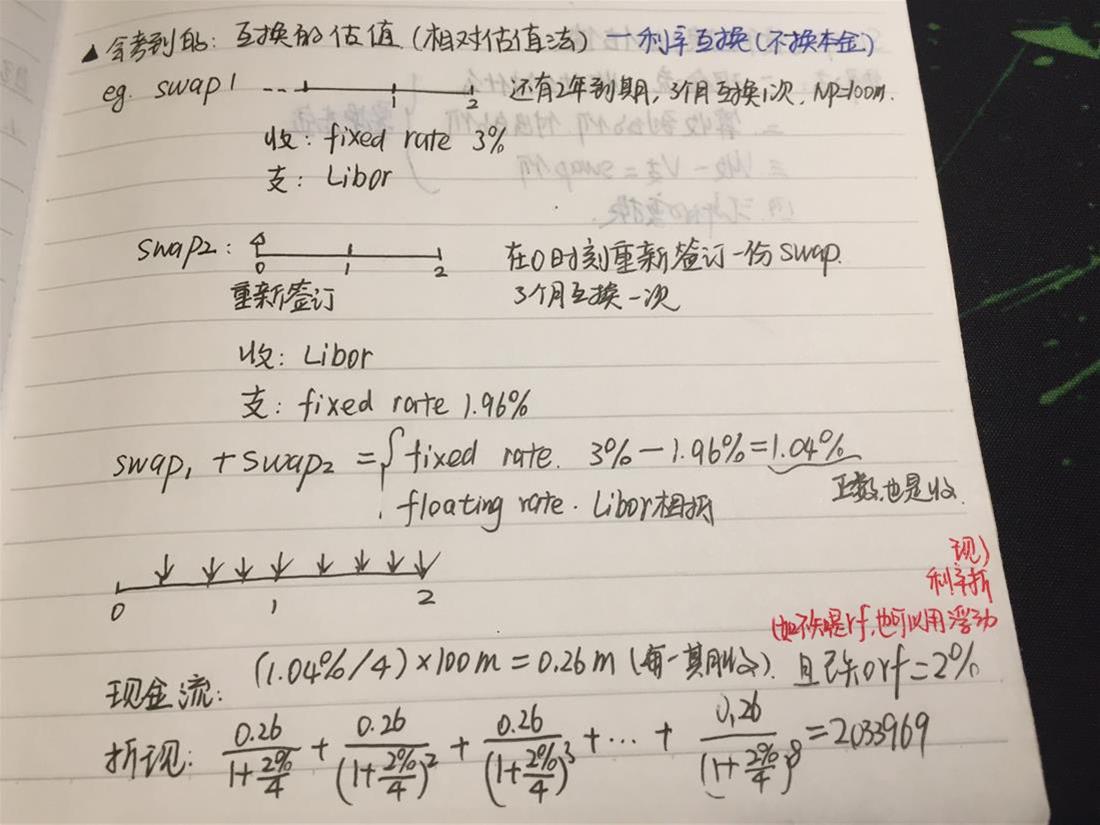 ▲ 会考到的：互换的估值（相对估值法）— 利率互换（不换本金）
eg. swap 1 1 2 还有2年到期，3个月互换1次，NP=100m.
收：fixed rate 3%
支：Libor
swap2： 0 1 2 在0时刻重新签订一份swap.
重新签订 3个月互换一次
收：Libor
支：fixed rate 1.96%
swap₁ + swap₂ = { fixed rate. 3% − 1.96% = 1.04%
正数，也是收
floating rate. Libor相抵
0 1 2
现)
利率折
(如不知道rf，也可以用浮动
现金流：(1.04%/4) × 100m = 0.26m (每一期期收). 且已知rf = 2%
折现：0.26/(1+2%/4) + 0.26/(1+2%/4)² + 0.26/(1+2%/4)³ + ... + 0.26/(1+2%/4)⁸ = 2033969